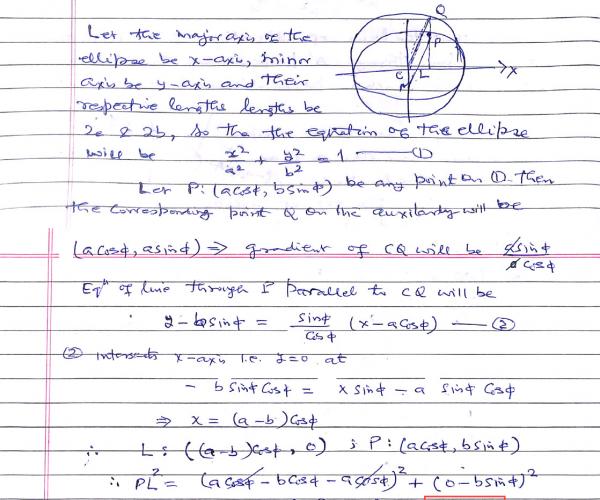 Let the major axis of the
ellipse be x-axis, minor
axis be y-axis and their
respective lengths lengths be
2a & 2b, so the the equation of the ellipse
will be x²/a² + y²/b² = 1 — ①
Let P: (acosϕ, bsinϕ) be any point on ①. Then
the corresponding point Q on the auxilardy will be
(acosϕ, asinϕ) ⇒ gradient of CQ will be asinϕ/acosϕ
Eqⁿ of line through P parallel to CQ will be
y - bsinϕ = sinϕ/cosϕ (x - acosϕ) — ②
② intersects x-axis i.e. y=0 at
- b sinϕ cosϕ = x sinϕ - a sinϕ cosϕ
⇒ x = (a-b)cosϕ
∴ L: ((a-b)cosϕ, 0) ; P: (acosϕ, bsinϕ)
∴ PL² = (acosϕ - bcosϕ - acosϕ)² + (0 - bsinϕ)²
Q
P
C
L
X